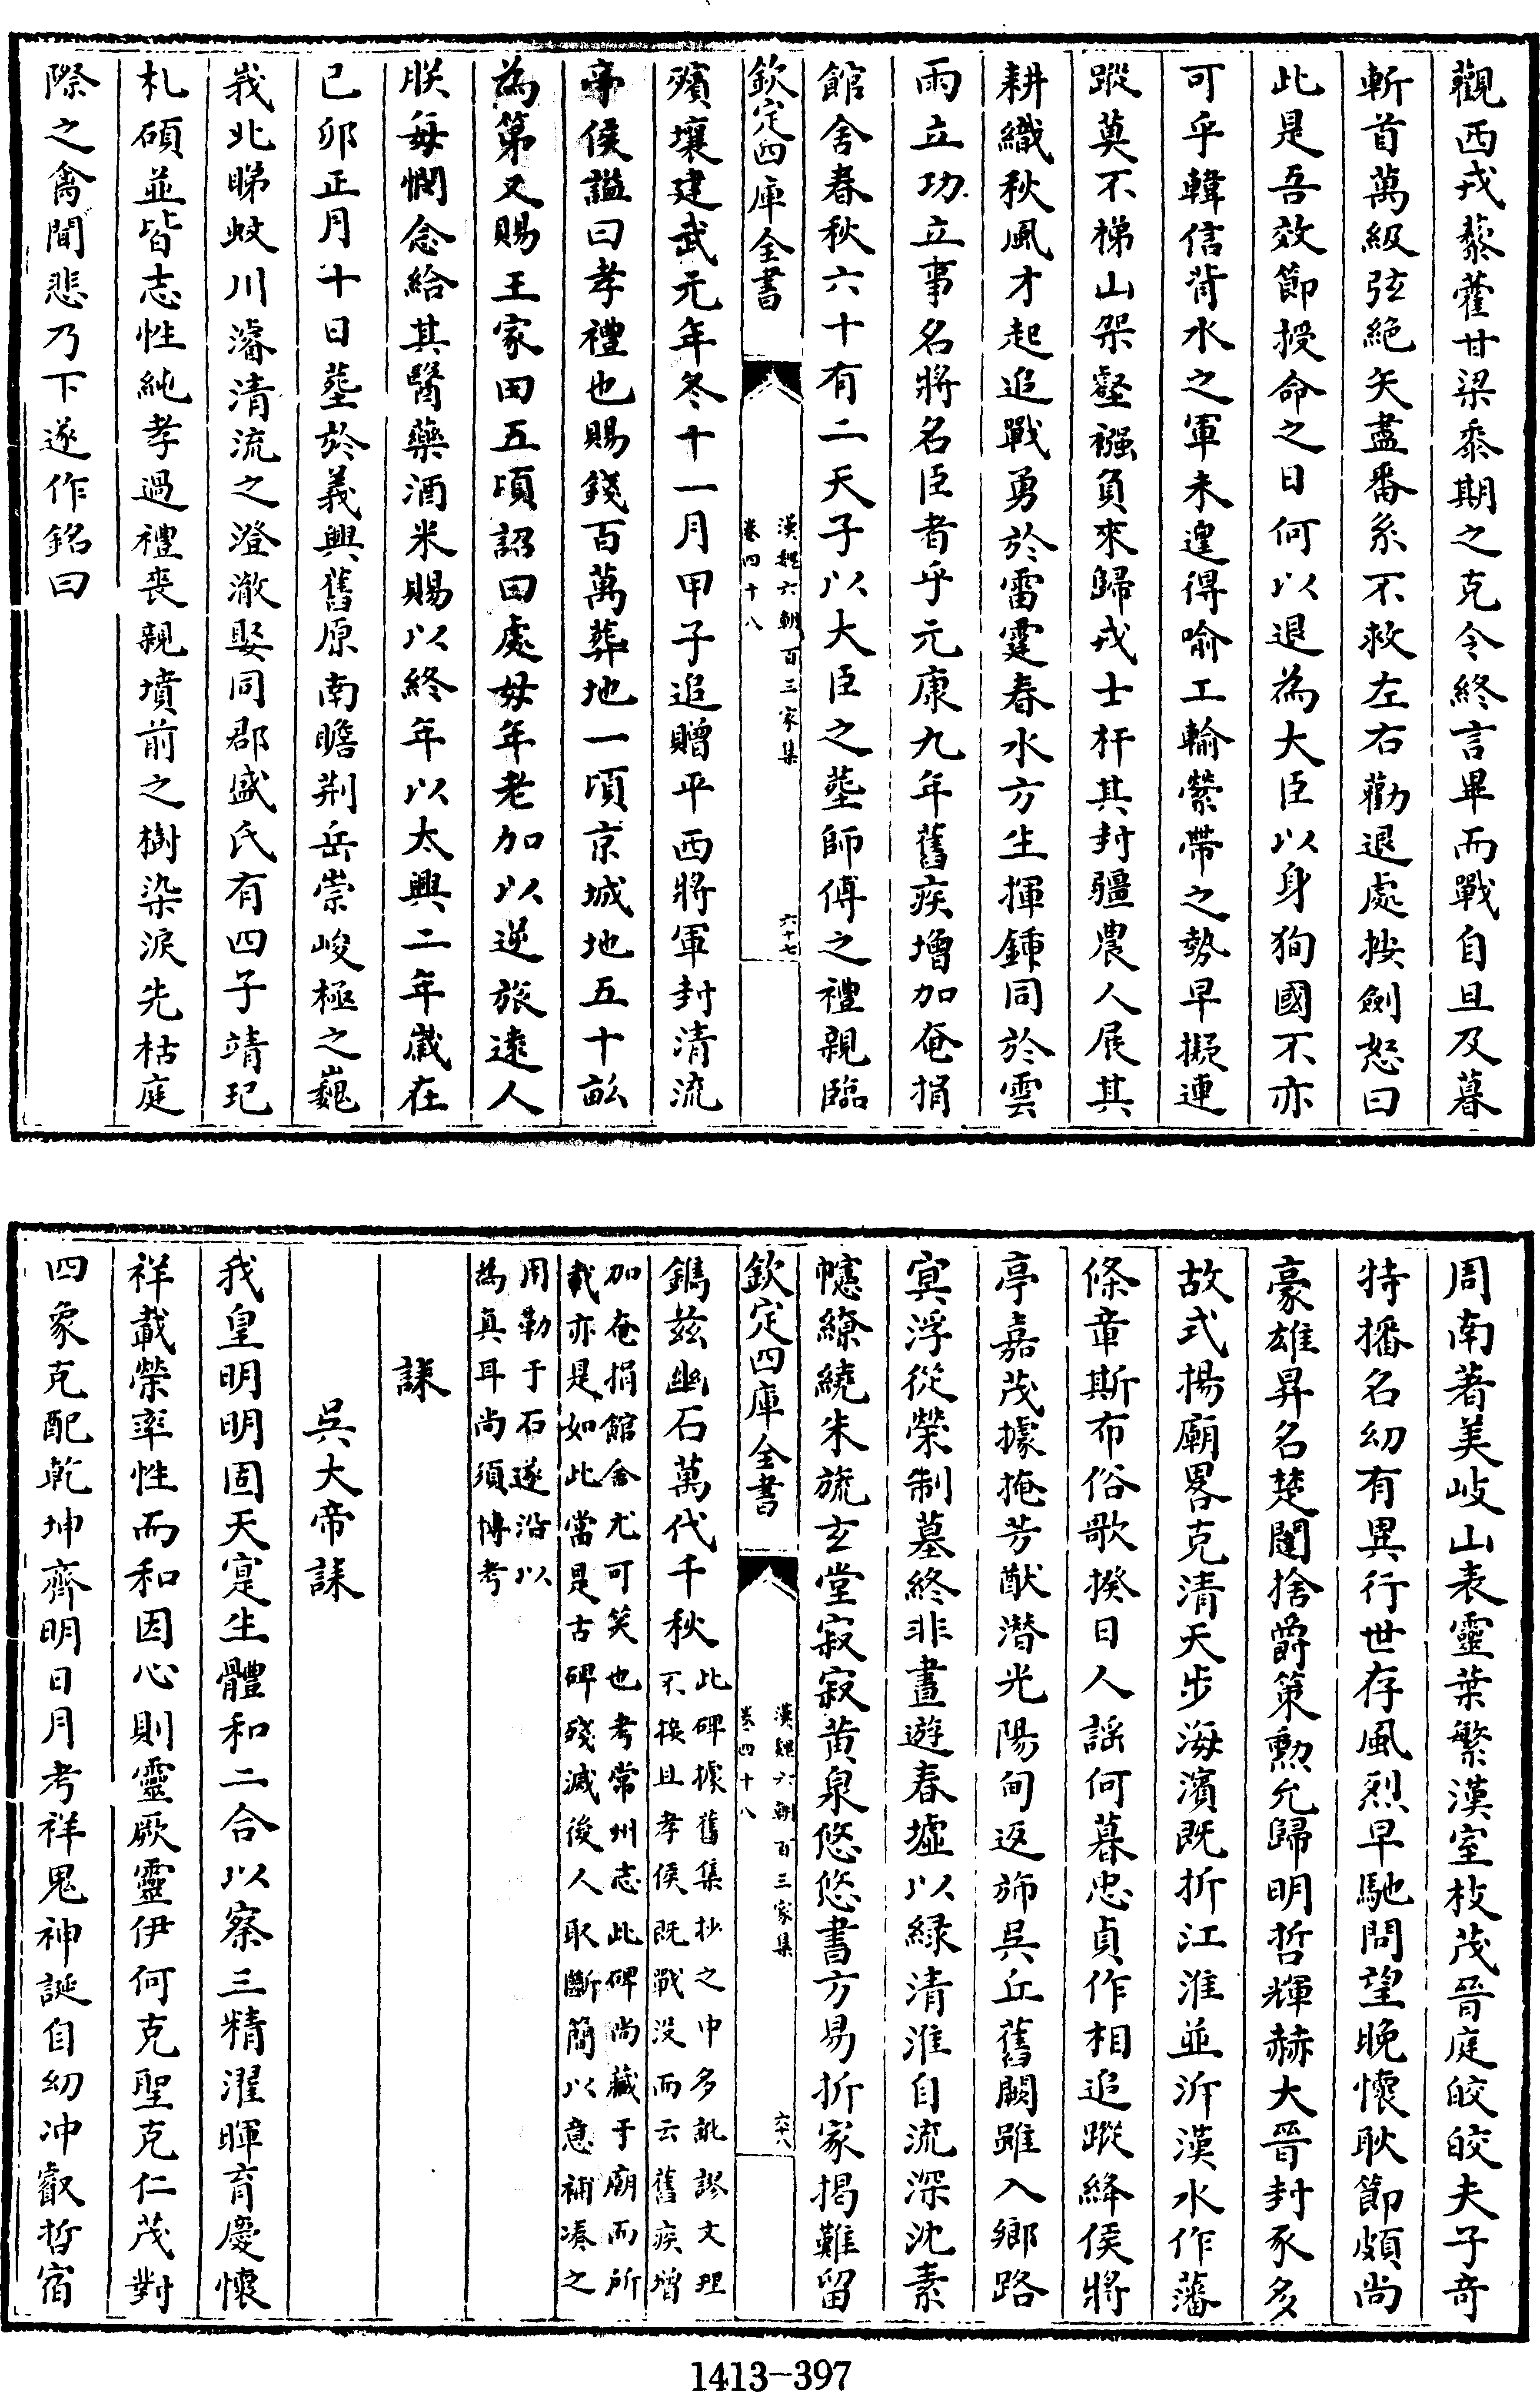 觀西戎藜藿甘梁黍期之克令終言畢而戰自旦及暮
斬首萬級弦絶矢盡番系不救左右勸退處按劍怒曰
此是吾效節授命之日何以退為大臣以身狥國不亦
可乎韓信背水之軍未遑得喻工輸縈帶之勢早擬連
蹤莫不梯山架壑襁負來歸戎士扞其封疆農人展其
耕織秋風才起追戰勇於雷霆春水方生揮鍾同於雲
雨立功立事名將名臣者乎元康九年舊疾增加奄捐
館舍春秋六十有二天子以大臣之塟師傅之禮親臨
欽定四庫全書
漢魏六朝百三家集
卷四十八
六十七
殯壤建武元年冬十一月甲子追贈平西將軍封清流
亭侯諡曰孝禮也賜錢百萬葬地一頃京城地五十畝
為第又賜王家田五頃詔曰處母年老加以逆旅遠人
朕每憫念給其醫藥酒米賜以終年以太興二年歲在
已卯正月十日塟於義興舊原南瞻荆岳崇峻極之巍
峩北睇蛟川濬清流之澄澈娶同郡盛氏有四子靖玘
札碩並皆志性純孝過禮喪親墳前之樹染淚先枯庭
際之禽聞悲乃下遂作銘曰
周南著美岐山表靈葉繁漢室枝茂晉庭皎皎夫子奇
特播名幼有異行世存風烈早馳問望晚懷耿節頗尚
豪雄昇名楚闥捨爵策勲允歸明哲輝赫大晉封豕多
故式揚廟畧克清天步海濱既折江淮並泝漢水作藩
條章斯布俗歌揆日人謡何暮忠貞作相追蹤絳侯將
亭嘉茂據掩芳猷潛光陽甸返斾吳丘舊闕雖入鄉路
㝠浮從榮制墓終非晝遊春墟以緑清淮自流深沈素
幰繚繞朱旒玄堂寂寂黄泉悠悠書方易折家揭難留
欽定四庫全書
漢魏六朝百三家集
卷四十八
六十八
鐫茲幽石萬代千秋
此碑據舊集抄之中多訛謬文理
不換且孝侯既戰没而云舊疾增
加奄捐館舍尤可笑也考常州志此碑尚藏于廟而所
載亦是如此當是古碑殘滅後人取斷簡以意補凑之
用勒于石遂沿以
為真耳尚須博考
誄
吳大帝誄
我皇明明固天寔生體和二合以察三精濯暉育慶懷
祥載榮率性而和因心則靈厥靈伊何克聖克仁茂對
四象克配乾坤齊明日月考祥鬼神誕自幼冲叡哲宿
1413-397